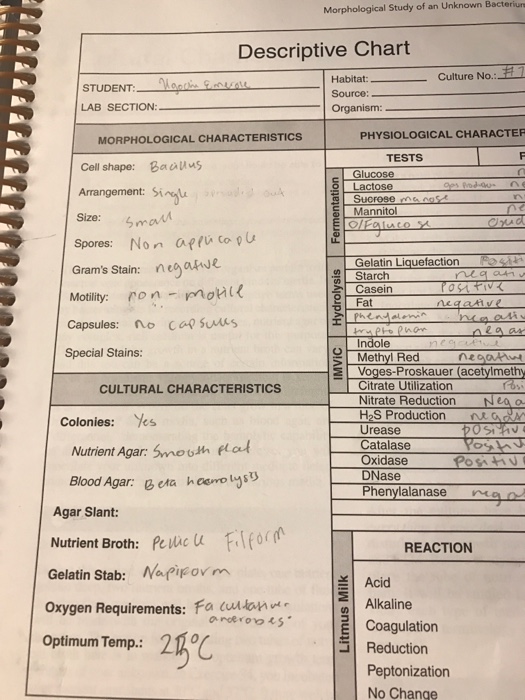 Morphological Study of an Unknown Bacterium
Descriptive Chart
STUDENT:
LAB SECTION:
Habitat: Culture No.: #7
Source:
Organism:
MORPHOLOGICAL CHARACTERISTICS
Cell shape: Bacillus
Arrangement: Single
Size: small
Spores: Non applicable
Gram's Stain: negative
Motility: non-motile
Capsules: no capsules
Special Stains:
CULTURAL CHARACTERISTICS
Colonies: Yes
Nutrient Agar: Smooth flat
Blood Agar: Beta heamolysis
Agar Slant:
Nutrient Broth: Pellicle Filform
Gelatin Stab: Napiform
Oxygen Requirements: Facultative
anerobes.
Optimum Temp.: 25°C
PHYSIOLOGICAL CHARACTER
TESTS
Fermentation
Glucose
Lactose
Sucrose manose
Mannitol
O/F glucose Oxid
Hydrolysis
Gelatin Liquefaction Positi
Starch negativ
Casein Positive
Fat negative
phenylalanin negativ
tryptophan negat
IMViC
Indole negative
Methyl Red negative
Voges-Proskauer (acetylmethy
Citrate Utilization Posi
Nitrate Reduction Nega
H₂S Production negativ
Urease positive
Catalase Positiv
Oxidase Positive
DNase
Phenylalanase nega
REACTION
Litmus Milk
Acid
Alkaline
Coagulation
Reduction
Peptonization
No Change